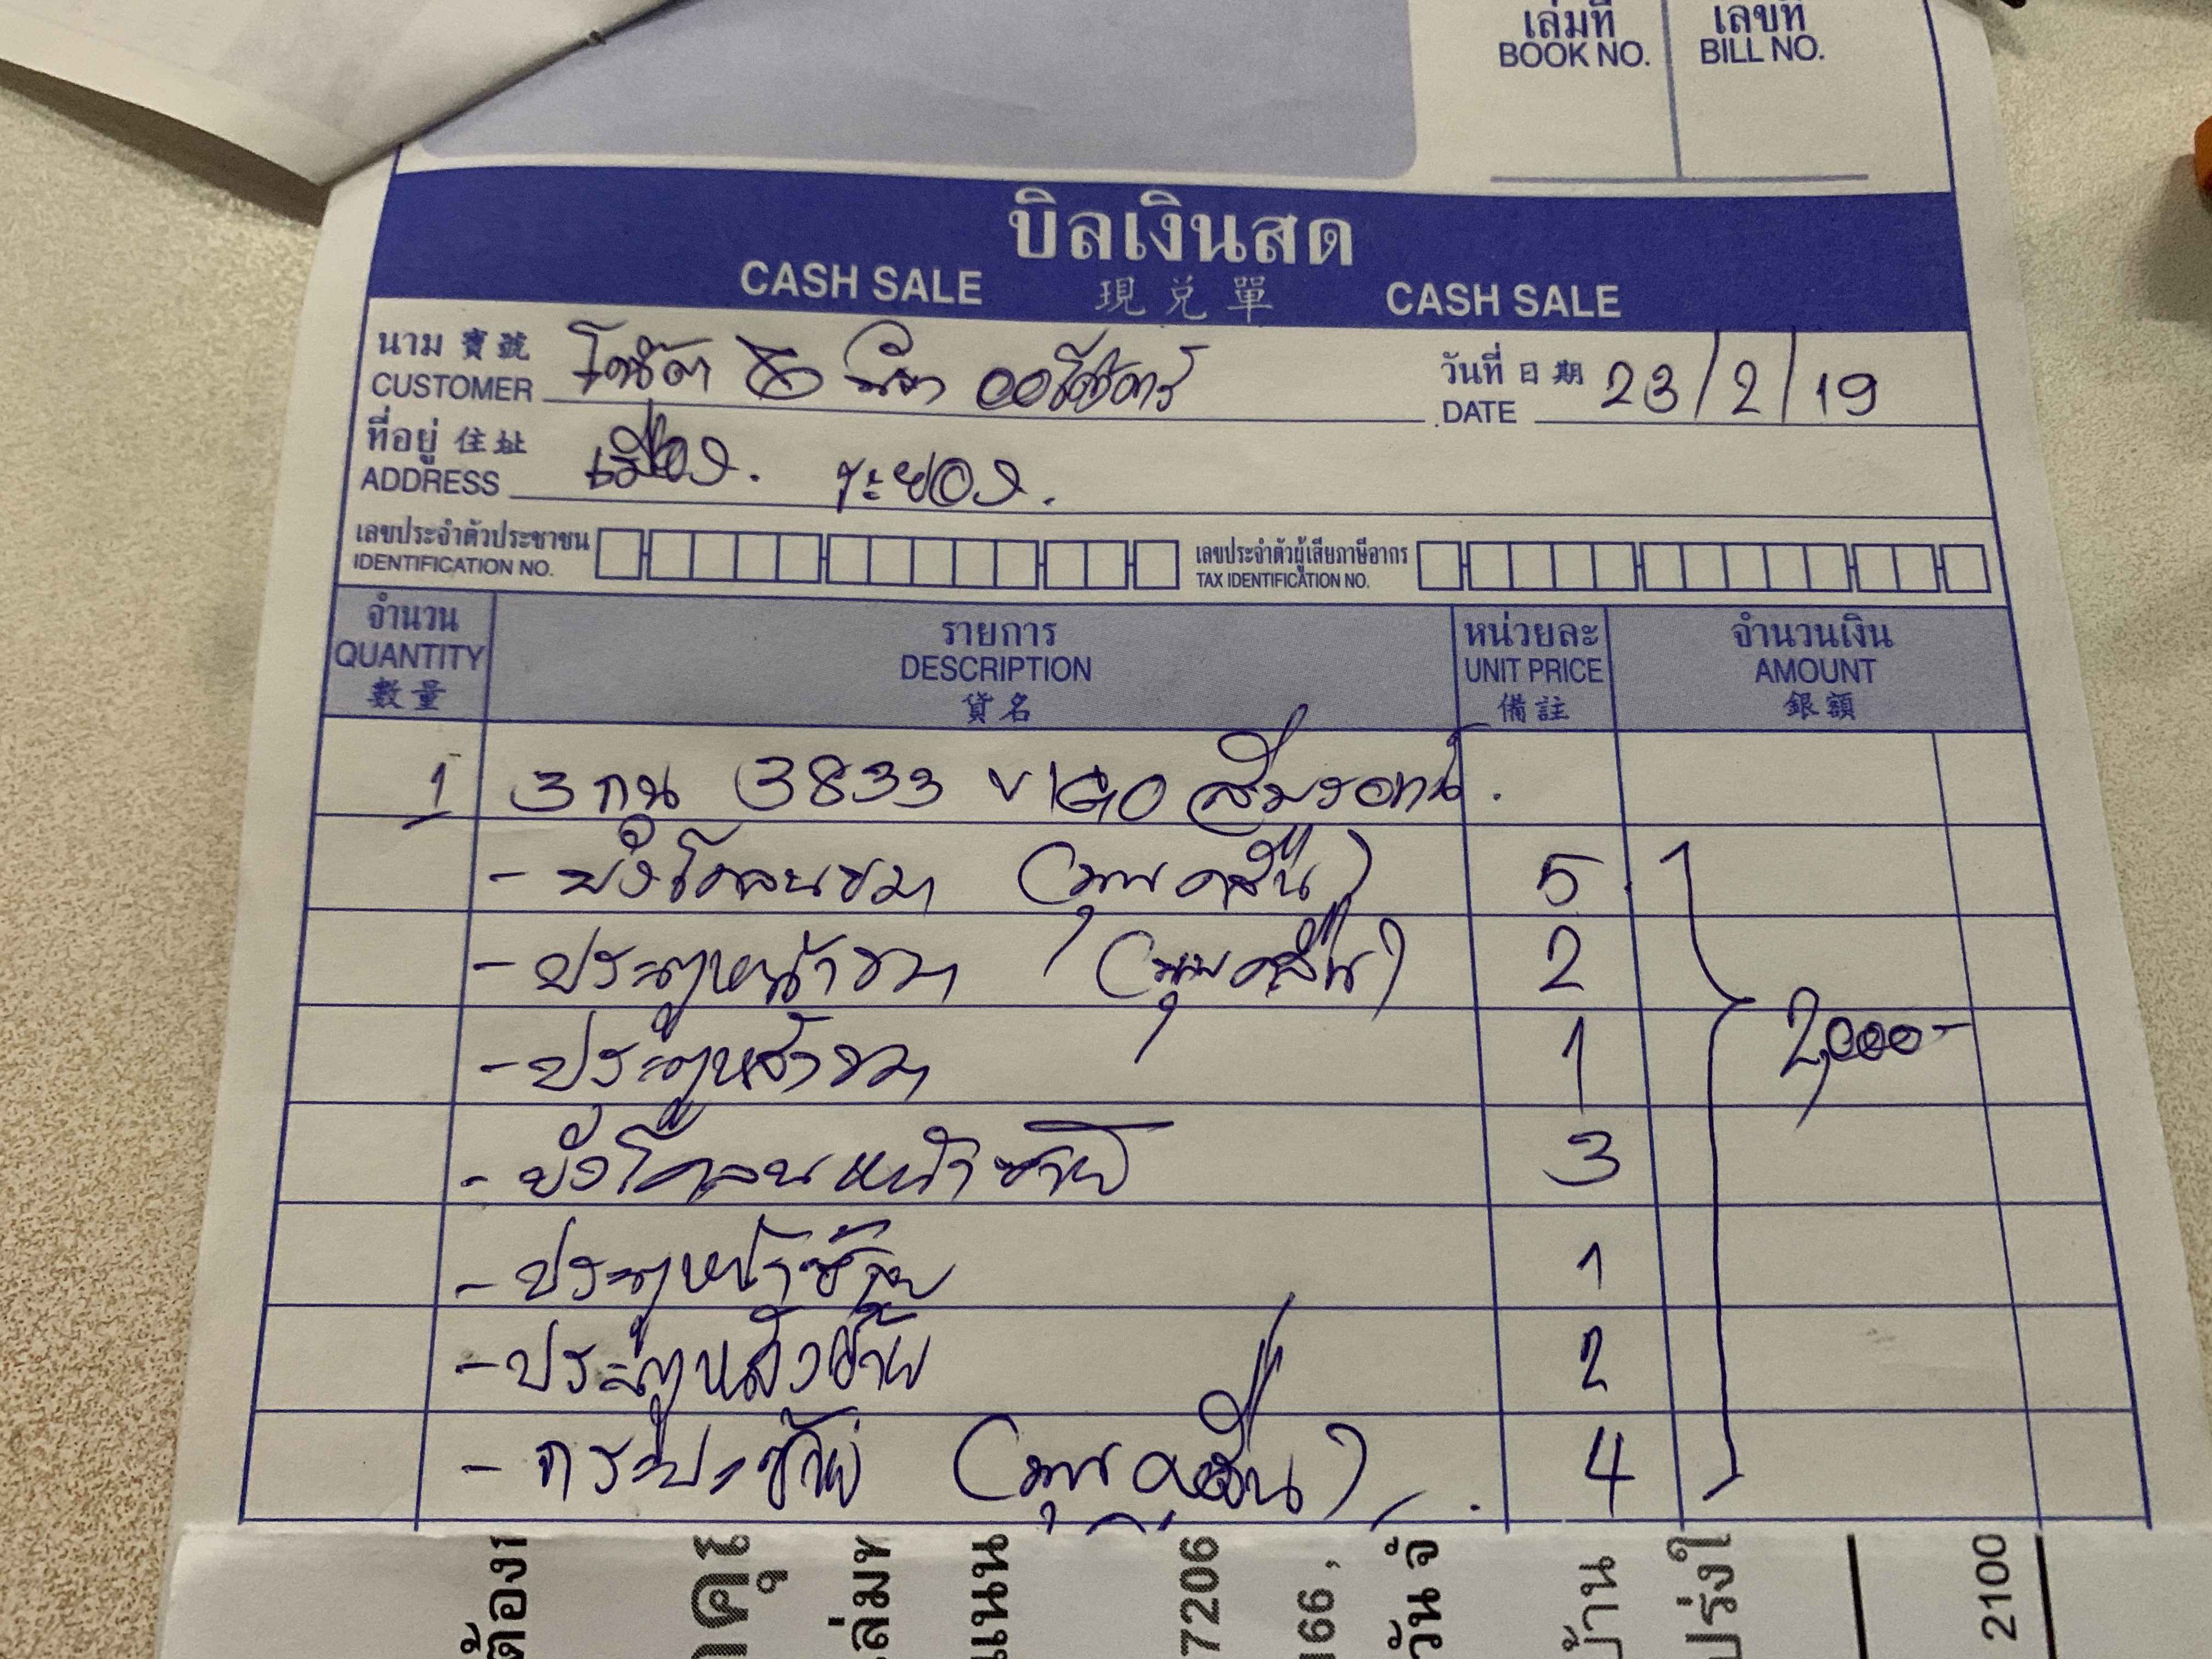 เล่มที่ เลขที่
BOOK NO. BILL NO.
บิลเงินสด
CASH SALE 現兌單 CASH SALE
นาม 寶號 วันที่ 日期
CUSTOMER DATE 23/2/19
ที่อยู่ 住址
ADDRESS เมือง. ระยอง.
เลขประจำตัวประชาชน เลขประจำตัวผู้เสียภาษีอากร
IDENTIFICATION NO. TAX IDENTIFICATION NO.
จำนวน รายการ หน่วยละ จำนวนเงิน
QUANTITY DESCRIPTION UNIT PRICE AMOUNT
數量 貨名 備註 銀額
1 3กน 3833 VIGO
- บังโคลนขวา 5
- ประตูหน้าขวา 2
- ประตูหลังขวา 1 2,000-
- บังโคลนหน้าซ้าย 3
- ประตูหน้าซ้าย 1
- ประตูหลังซ้าย 2
- กระบะซ้าย 4
7206
166,
วัน จั
บ้าน
2100